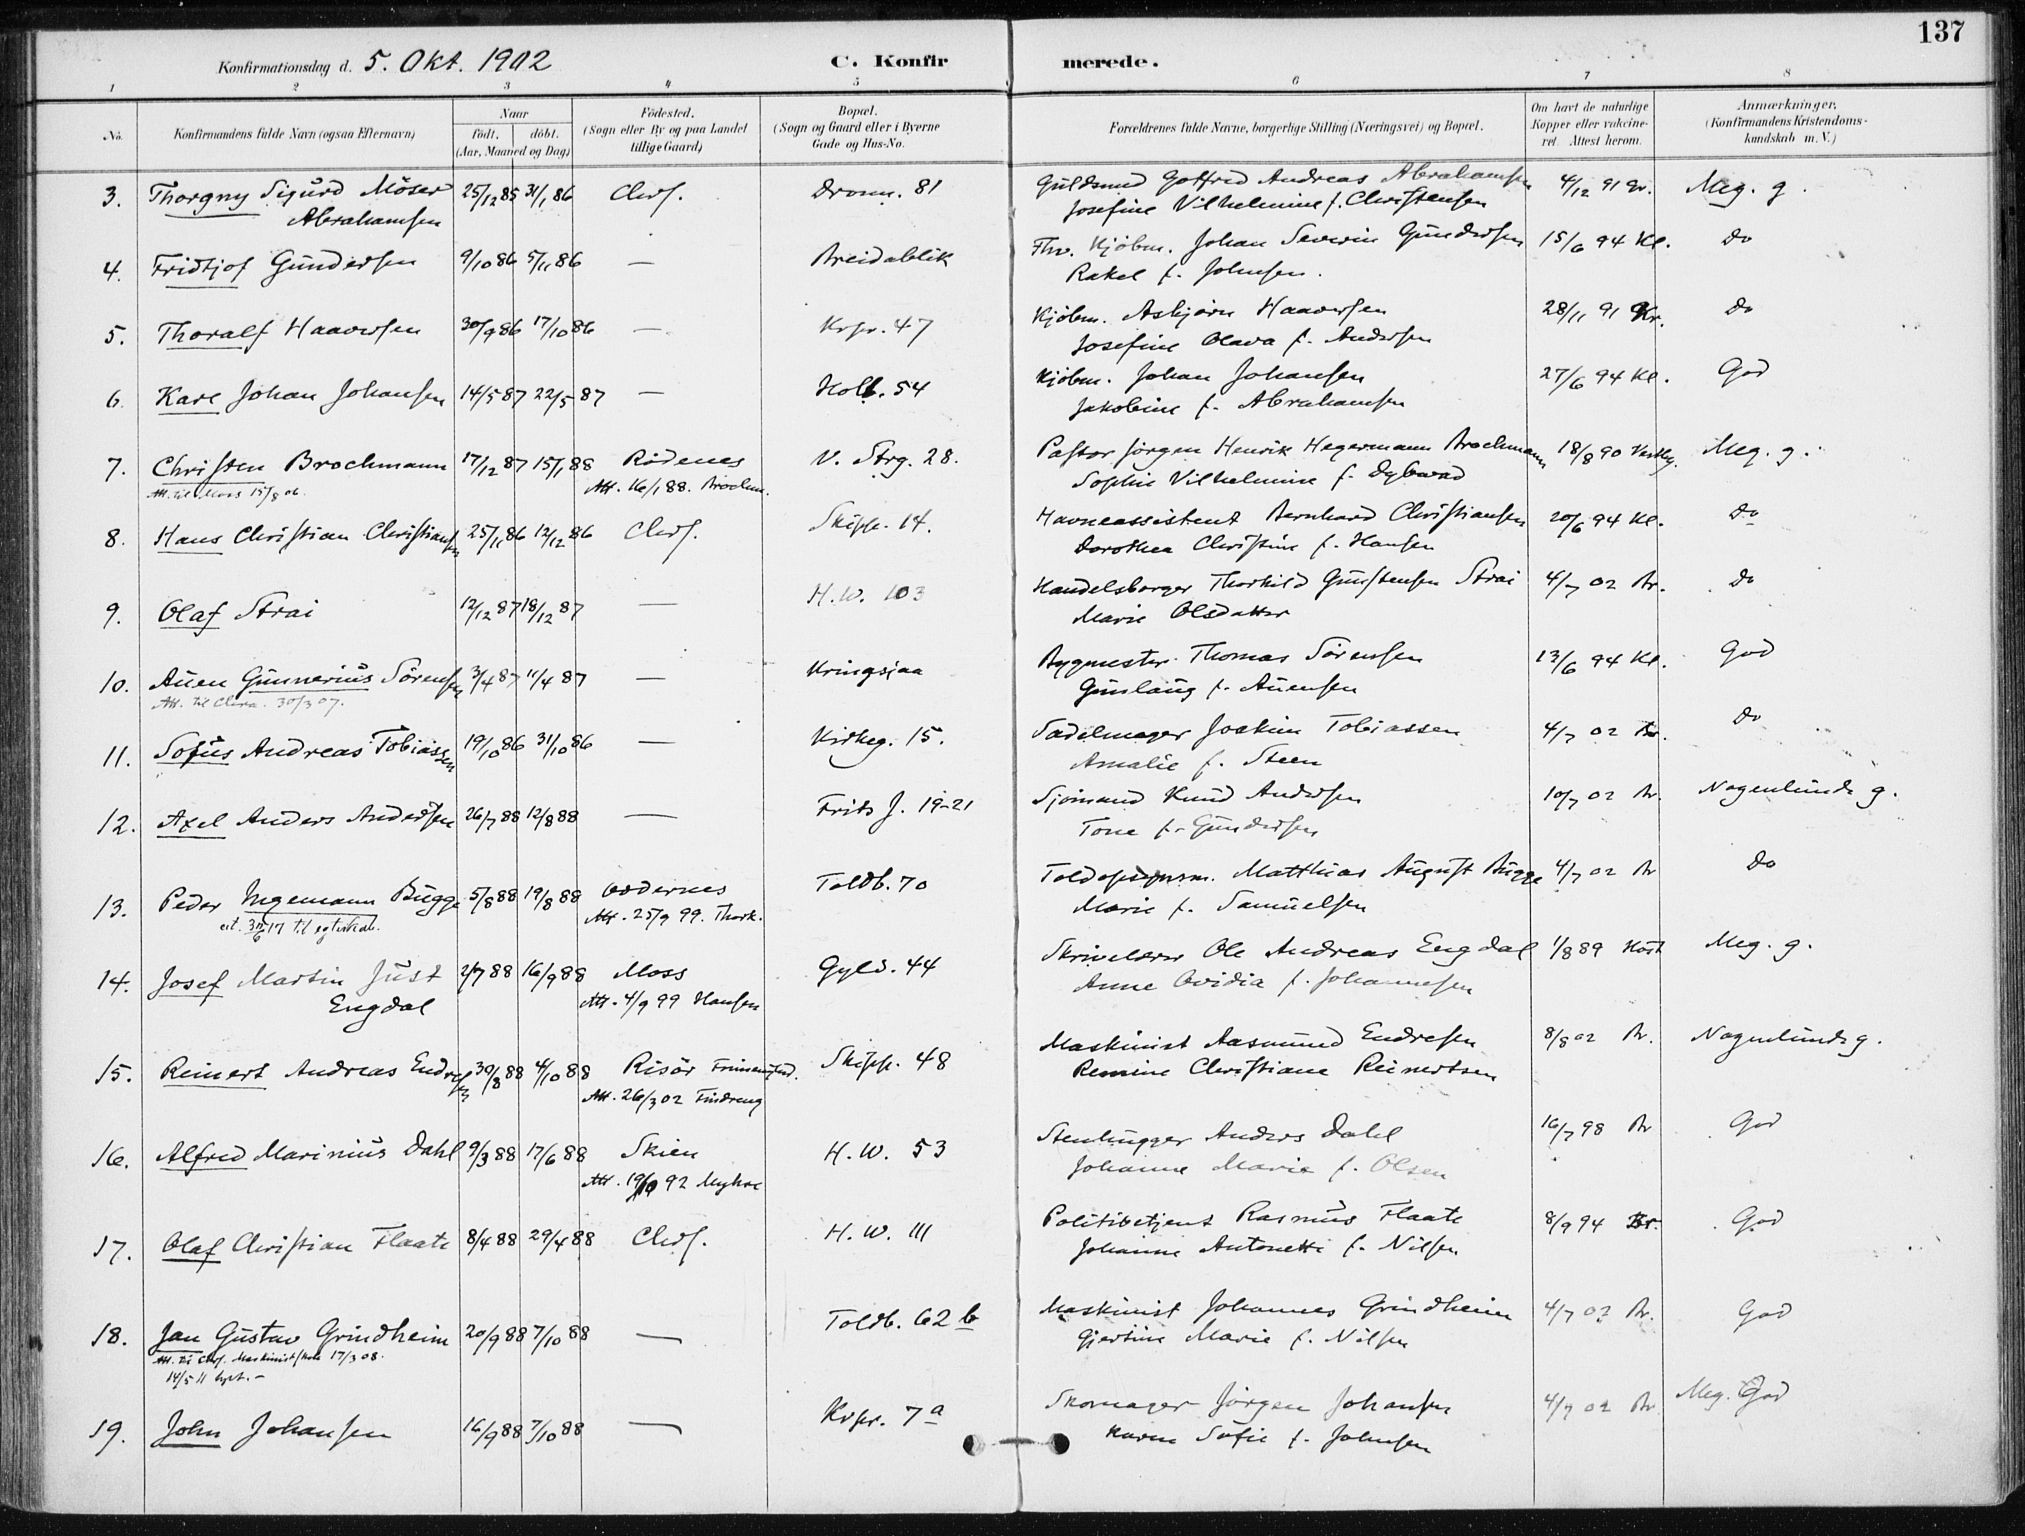 137
Konfirmationsdag d. 5. Okt. 1902 C. Konfirmerede.
1 2 3 4 5 6 7 8
No. Konfirmandens fulde Navn (ogsaa Efternavn) Naar født, døbt. (Aar, Maaned og Dag) Fødested. (Sogn eller By og paa Landet tillige Gaard) Bopæl. (Sogn og Gaard eller i Byerne Gade og Hus-No. Forældrenes fulde Navne, borgerlige Stilling (Næringsvei) og Bopæl. Om havt de naturlige Kopper eller vakcineret. Attest herom. Anmærkninger, (Konfirmandens Kristendomskundskab m. V.)
3. Thorgny Sigurd Möser 25/12 85 31/1 86 Chrs. Dronn. 81 Guldsmed Gotfred Andreas Abrahamsen 4/12 91 Gr. Meg. g.
Abrahamsen Josefine Vilhelmine f. Christensen
4. Fridtjof Gundersen 9/10 86 5/11 86 — Breidablik Fhv. Kjöbm. Johan Severin Gundersen 15/6 94 Kl. Do
Rakel f. Johnsen.
5. Thoralf Haaversen 30/9 86 17/10 86 — Krpr. 47 Kjöbm. Asbjörn Haaversen 28/11 91 Kr. Do
Josefine Olava f. Andersen
6. Karl Johan Johansen 14/5 87 22/5 87 — Holb. 54 Kjöbm. Johan Johansen 27/6 94 Kl. God
Jakobine f. Abrahamsen
7. Christen Brochmann 17/12 87 15/1 88 Rödenes V. Strg. 28. Pastor Jörgen Henrik Hegermann Brochmann 18/8 90 Meg. g.
Att. til Moss 15/8 06. Att. 16/1 88. Brochm. Sophie Vilhelmine f. Dybwad
8. Hans Christian Christiansen 25/11 86 12/12 86 Chrs. Skipp. 14. Havneassistent Bernhard Christiansen 20/6 94 Kl. Do
Dorothea Christine f. Hansen
9. Olaf Strai 12/12 87 18/12 87 — H.W. 103 Handelsborger Thorkild Gunstensen Strai 4/7 02 Br. Do
Marie Olsdatter
10. Auen Gunnerius Sörensen 3/4 87 11/4 87 — Kringsjaa Bygmester Thomas Sörensen 13/6 94 Kl. God
Att. til Chra. 30/3 07. Gunlaug f. Auensen
11. Sofus Andreas Tobiassen 19/10 86 31/10 86 — Kirkeg. 15. Sadelmager Joakim Tobiassen 4/7 02 Br. Do
Amalie f. Steen
12. Axel Anders Andersen 26/7 88 12/8 88 — Frits J. 19-21 Sjömand Knud Andersen 10/7 02 Br. Nogenlunde g.
Tone f. Gundersen
13. Peder Ingemann Bugge 5/8 88 19/8 88 Oddernes Toldb. 70 Toldopsynsm. Matthias August Bugge 4/7 02 Br Do
17 til egteskab. Att. 25/9 99. Thork. Marie f. Samuelsen
14. Josef Martin Just 2/7 88 16/9 88 Moss Gyld. 44 Skrivelærer Ole Andreas Engdal 1/8 89 Höst Meg. g.
Engdal Att. 4/9 99 Hansen Anne Ovidia f. Johannesen
15. Reinert Andreas Endresen 30/8 88 4/10 88 Risör Skipp. 48 Maskinist Aasmund Endresen 8/8 02 Br. Nogenlunde g.
Att. 26/3 02 Findreng Remine Christiane Reinertsen
16. Alfred Marinius Dahl 9/3 88 17/6 88 Skien H.W. 53 Stenhugger Anders Dahl 16/7 98 Br God
Att. 19/10 92 Myhre Johanne Marie f. Olsen
17. Olaf Christian Flaate 8/4 88 29/4 88 Chrs. H.W. 111 Politibetjent Rasmus Flaate 8/9 94 Br. God
Johanne Antonette f. Nilsen
18. Jan Gustav Grindheim 20/9 88 7/10 88 — Toldb. 62 b Maskinist Johannes Grindheim 4/7 02 Br. God
Att. til Chrs. Maskinistskole 17/3 08. Gjertine Marie f. Nilsen
14/5 11
19. John Johansen 16/9 88 7/10 88 — Krpr. 7 a Skomager Jörgen Johansen 4/7 02 Br Meg. God
Karen Sofie f. Johnsen